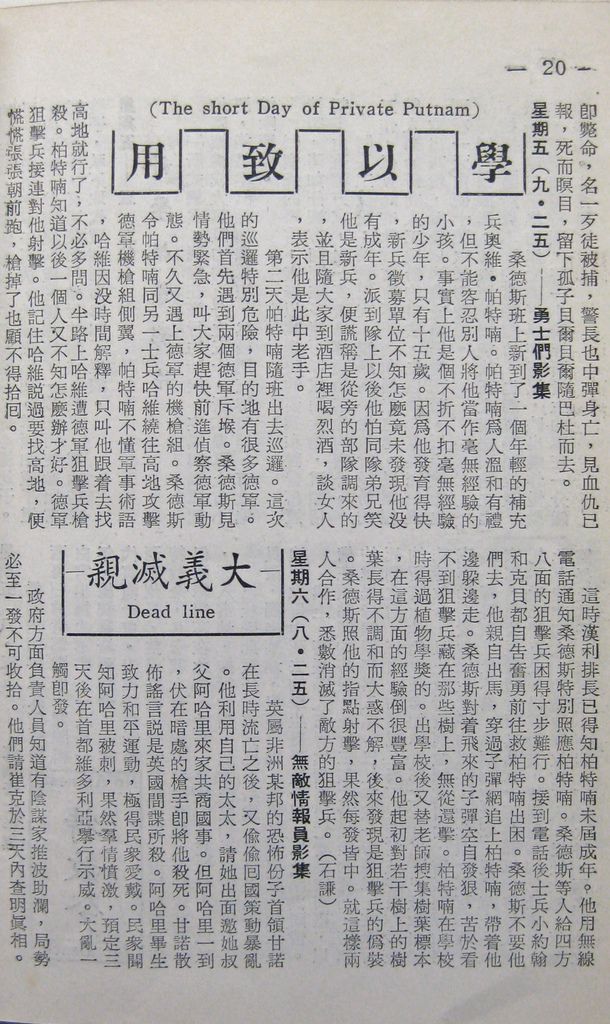 — 20 —
即斃命，名一歹徒被捕，警長也中彈身亡，見血仇已
報，死而瞑目，留下孤子貝爾貝爾隨巴杜而去。
星期五（九·二五）——勇士們影集
學以致用
(The short Day of Private Putnam)
桑德斯班上新到了一個年輕的補充
兵奧維·帕特喃。帕特喃爲人溫和有禮
，但不能容忍別人將他當作毫無經驗的
小孩。事實上他是個不折不扣毫無經驗
的少年，只有十五歲。因爲他發育得快
，新兵徵募單位不知怎麼竟未發現他没
有成年。派到隊上以後他怕同隊弟兄笑
他是新兵，便謊稱是從旁的部隊調來的
，並且隨大家到酒店裡喝烈酒，談女人
，表示他是此中老手。
第二天帕特喃隨班出去巡邏。這次
的巡邏特別危險，目的地有很多德軍。
他們首先遇到兩個德軍斥堠。桑德斯見
情勢緊急，叫大家趕快前進偵察德軍動
態。不久又遇上德軍的機槍組。桑德斯
令帕特喃同另一士兵哈維繞往高地攻擊
德軍機槍組側翼，帕特喃不懂軍事術語
，哈維因没時間解釋，只叫他跟着去找
高地就行了，不必多問。半路上哈維遭德軍狙擊兵槍
殺。柏特喃知道以後一個人又不知怎麼辦才好。德軍
狙擊兵接連對他射擊。他記住哈維説過要找高地，便
慌慌張張朝前跑，槍掉了也顧不得拾囘。
這時漢利排長已得知柏特喃未屆成年。他用無線
電話通知桑德斯特別照應柏特喃。桑德斯等人給四方
八面的狙擊兵困得寸步難行。接到電話後士兵小約翰
和克貝都自告奮勇前往救柏特喃出困。桑德斯不要他
們去，他親自出馬，穿過子彈網追上柏特喃，帶着他
邊躱邊走。桑德斯對着飛來的子彈空自發狠，苦於看
不到狙擊兵藏在那些樹上，無從還擊。柏特喃在學校
時得過植物學獎的。出學校後又替老師搜集樹葉標本
，在這方面的經驗倒很豐富。他起初對若干樹上的樹
葉長得不調和而大惑不解，後來發現是狙擊兵的僞裝
。桑德斯照他的指點射擊，果然每發皆中。就這樣兩
人合作，悉數消滅了敵方的狙擊兵。（石謙）
星期六（八·二五）——無敵情報員影集
大義滅親
Dead line
英屬非洲某邦的恐怖份子首領甘諾
在長時流亡之後，又偷偷囘國策動暴亂
。他利用自己的太太，請她出面邀她叔
父阿哈里來家共商國事。但阿哈里一到
，伏在暗處的槍手即將他殺死。甘諾散
佈謠言説是英國間諜所殺。阿哈里畢生
致力和平運動，極得民衆愛戴。民衆聞
知阿哈里被刺，果然羣情憤激，預定三
天後在首都維多利亞擧行示威。大亂一
觸即發。
政府方面負責人員知道有陰謀家推波助瀾，局勢
必至一發不可收拾。他們請崔克於三天內查明眞相。